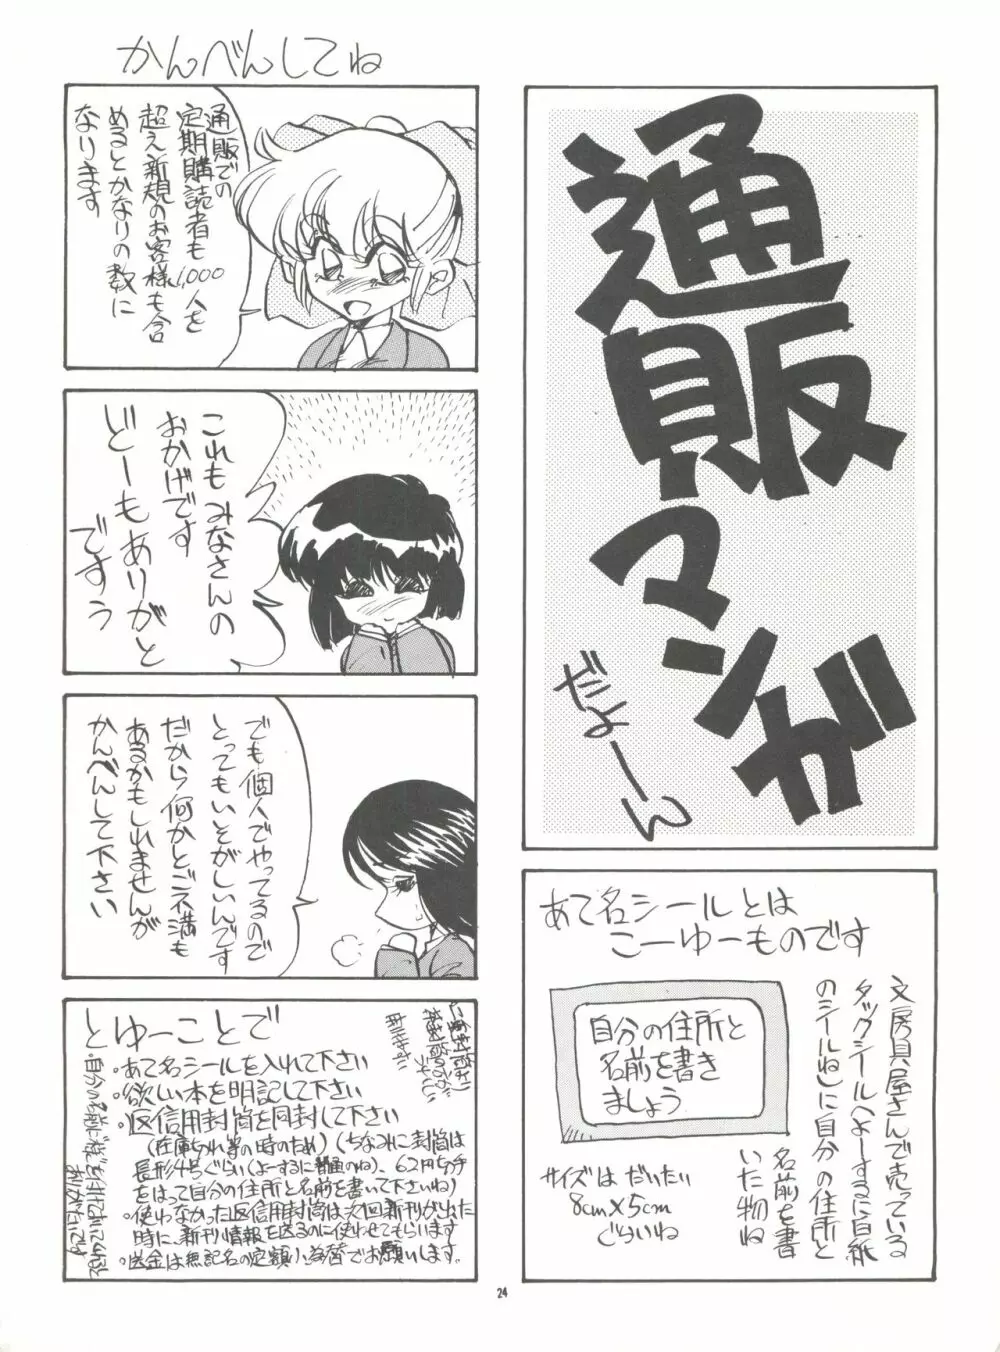 通販マンガ
だよーん
あて名シールとは
こーゆーものです
文房具屋さんで売っている
タックシール(よーするに白紙
のシールね)に自分の住所と
名前を書
いた物ね
自分の住所と
名前を書き
ましょう
サイズは だいたい
8cm×5cm
ぐらいね
かんべんしてね
通販での
定期購読者も
1,000人を
超え新規のお客様も含
めるとかなりの数に
なります
これもみなさんの
おかげです
どーもありがと
ですぅ
でも個人でやってるので
とってもいそがしいんです
だから何かとご不満も
あるかもしれませんが
かんべんして下さい
とゆーことで
・あて名シールを入れて下さい
・欲しい本を明記して下さい
・返信用封筒を同封して下さい
(在庫切れ等の時のため)(ちなみに封筒は
長形4号ぐらい(よーするに普通のね)、62円切手
をはって自分の住所と名前を書いて下さいね)
・使わなかった返信用封筒は次回新刊が出た
時に、新刊情報を送るのに使わせてもらいます
・送金は無記名の定額小為替でお願いします。
24